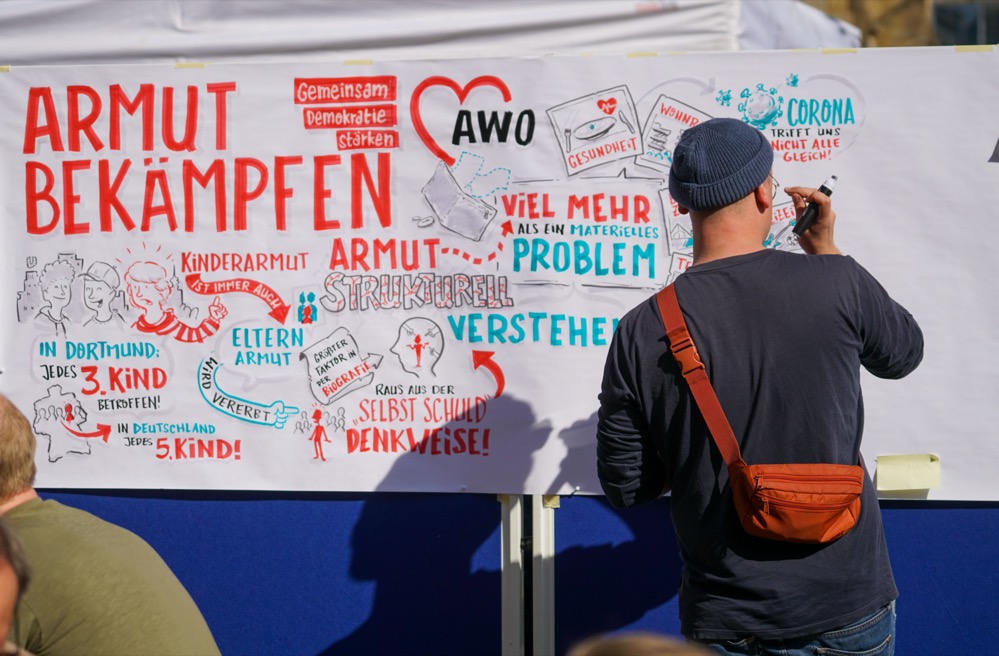 ARMUT
BEKÄMPFEN
Gemeinsam
Demokratie
stärken
AWO
GESUNDHEIT
WOHNR
CORONA
TRIFFT UNS
NICHT ALLE
GLEICH!
VIEL MEHR
ALS EIN MATERIELLES
PROBLEM
ARMUT
STRUKTURELL
VERSTEHE
KINDERARMUT
IST IMMER AUCH
ELTERN
ARMUT
WIRD
VERERBT
GRÖßTER
FAKTOR IN
DER
BIOGRAFIE
IN DORTMUND:
JEDES 3.KIND
BETROFFEN!
IN DEUTSCHLAND
JEDES
5.KIND!
RAUS AUS DER
„SELBST SCHULD"
DENKWEISE!